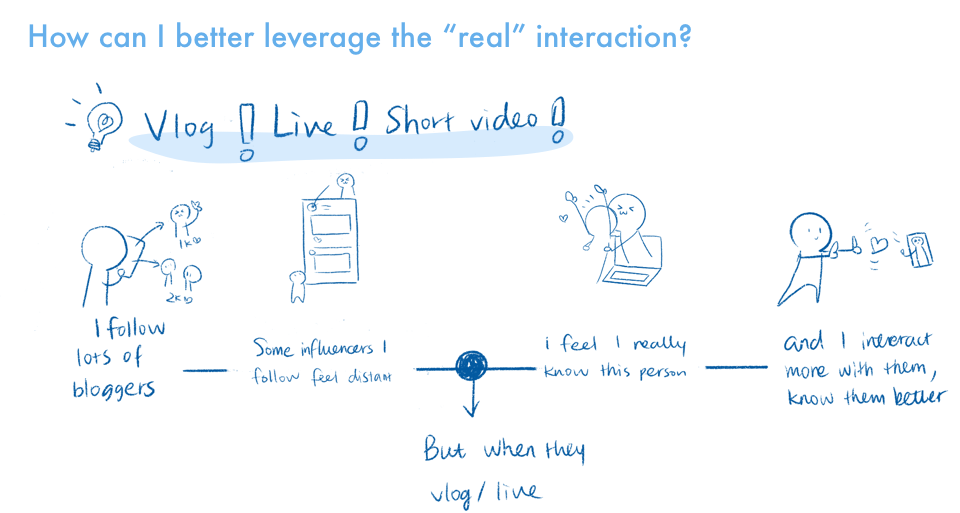 How can I better leverage the “real” interaction?
Vlog ! Live ! Short video !
1K
2K
I follow
lots of
bloggers
Some influencers I
follow feel distant
But when they
vlog / live
i feel I really
know this person
and I interact
more with them,
know them better